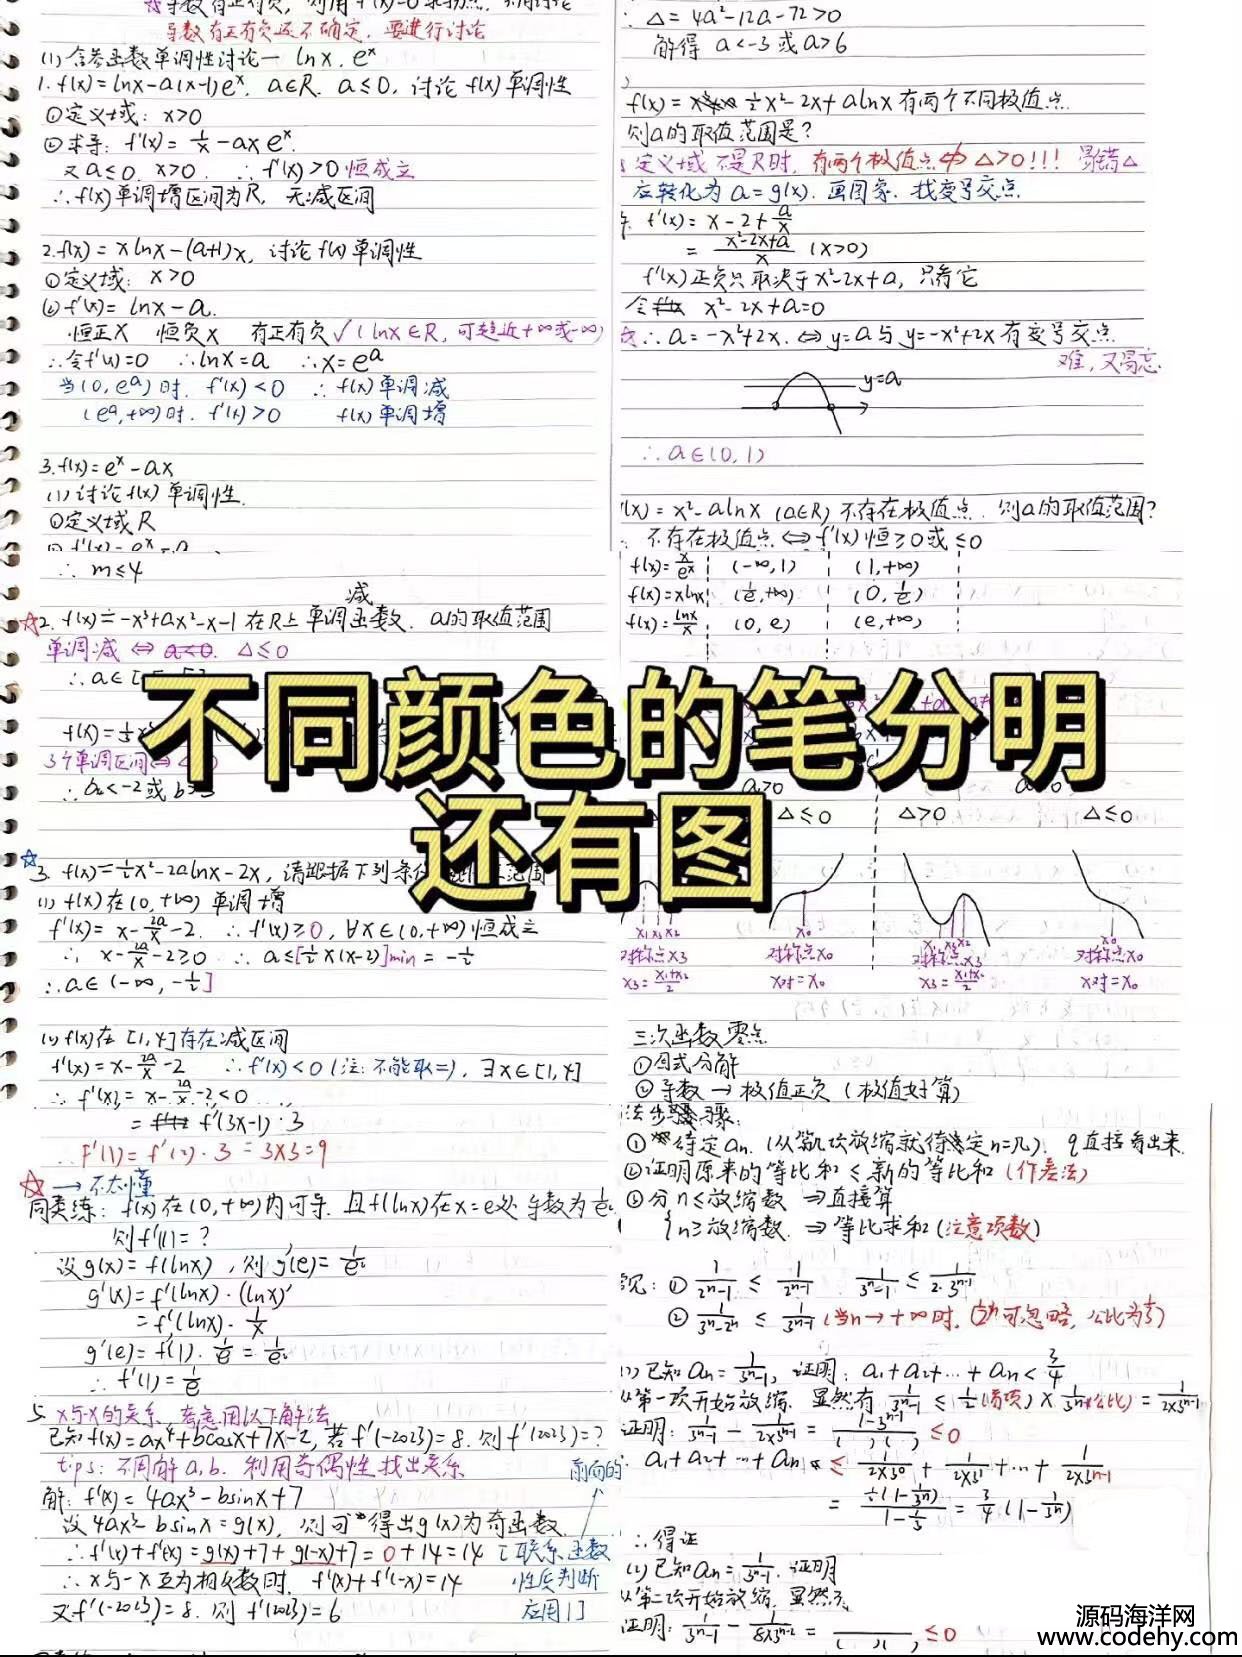 导数有正有负还不确定，要进行讨论
(1) 含参函数单调性讨论一 lnx, eˣ
1. f(x)=lnx-a(x-1)eˣ, a∈R, a≤0, 讨论 f(x) 单调性
①定义域: x>0
②求导: f'(x)=1/x-axeˣ.
又a≤0, x>0. ∴f'(x)>0恒成立
∴f(x)单调增区间为R, 无减区间
2. f(x)=xlnx-(a+1)x, 讨论f(x)单调性
①定义域: x>0
②f'(x)=lnx-a.
恒正X 恒负X 有正有负✓(lnx∈R, 可趋近+∞或-∞)
∴令f'(x)=0 ∴lnx=a ∴x=eᵃ
当(0,eᵃ)时, f'(x)<0 ∴f(x)单调减
(eᵃ,+∞)时, f'(x)>0 f(x)单调增
3. f(x)=eˣ-ax
(1)讨论f(x)单调性.
①定义域R
∴m≤4
减
☆2. f(x)=-x³+ax²-x-1在R上单调函数, a的取值范围
单调减⇔ Δ≤0
3个单调区间⇔
∴a<-2或
☆3. f(x)=½x²-2alnx-2x, 请跟据下列条
(1) f(x)在(0,+∞)单调增
f'(x)=x-2a/x-2. ∴f'(x)≥0, ∀x∈(0,+∞)恒成立
∴x-2a/x-2≥0 ∴a≤[½x(x-2)]min=-½
∴a∈(-∞,-½]
(2) f(x)在[1,4]存在减区间
f'(x)=x-2a/x-2 ∴f'(x)<0(注:不能取=), ∃x∈[1,4]
∴f'(x)=x-2a/x-2<0
=f'(3x-1)·3
∴F'(1)=f'(2)·3=3×3=9
☆→不太懂
同类练: f(x)在(0,+∞)内可导, 且f(lnx)在x=e处导数为1/e²
则f'(1)=?
设g(x)=f(lnx), 则g'(e)=1/e²
g'(x)=f'(lnx)·(lnx)'
=f'(lnx)·1/x
g'(e)=f'(1)·1/e=1/e²
∴f'(1)=1/e
5. x与-x的关系, 考虑用以下解法
已知f(x)=ax⁴+bcosx+7x-2, 若f'(-2023)=8, 则f'(2023)=?
tips: 不用解a,b, 利用奇偶性找出关系
解: f'(x)=4ax³-bsinx+7
设4ax³-bsinx=g(x), 则可得出g(x)为奇函数
∴f'(x)+f'(-x)=g(x)+7+g(-x)+7=0+14=14
∴x与-x互为相反数时, f'(x)+f'(-x)=14
又f'(-2023)=8, 则f'(2023)=6
前面的
[联系函数
性质判断
应用1]
∴Δ=4a²-12a-72>0
解得a<-3或a>6
f(x)=½x²-2x+alnx有两个不同极值点
则a的取值范围是?
定义域不是R时, 有两个极值点 Δ>0!!! 易错△
应转化为a=g(x), 画图象, 找变号交点
f'(x)=x-2+a/x
=(x²-2x+a)/x (x>0)
f'(x)正负只取决于x²-2x+a, 只看它
令 x²-2x+a=0
∴a=-x²+2x ⇔ y=a与y=-x²+2x有变号交点
难, 又易忘
y=a
∴a∈(0,1)
f(x)=x²-alnx (a∈R)不存在极值点, 则a的取值范围?
不存在极值点⇔f'(x)恒≥0或≤0
f(x)=x/eˣ (-∞,1) (1,+∞)
f(x)=xlnx (1/e,+∞) (0,1/e)
f(x)=lnx/x (0,e) (e,+∞)
不同颜色的笔分明
还有图
a>0
Δ≤0 Δ>0 Δ≤0
x₁x₃x₂ x₀ x₁x₃x₂ x₀
对称点x₃ 对称点x₀ 对称点x₃ 对称点x₀
x₃=(x₁+x₂)/2 x对=x₀ x₃=(x₁+x₂)/2 x对=x₀
三次函数零点
①因式分解
②导数→极值正负(极值好算)
法步骤:
①待定aₙ, (从第几项放缩就待定n=几), q直接看出来
②证明原来的等比和≤新的等比和(作差法)
③分n≤放缩数⇒直接算
n≥放缩数⇒等比求和(注意项数)
①1/(2ⁿ-1)≤1/2ⁿ⁻¹ 1/(3ⁿ-1)≤1/(2·3ⁿ⁻¹)
②1/(3ⁿ-2ⁿ)≤1/3ⁿ⁻¹(当n→+∞时, 2ⁿ可忽略, 公比为⅓)
(1)已知aₙ=1/(3ⁿ-1), 证明: a₁+a₂+…+aₙ<3/4
从第一项开始放缩, 显然有1/(3ⁿ-1)≤½(首项)×1/3ⁿ⁻¹(公比)=1/(2×3ⁿ⁻¹)
证明: 1/(3ⁿ-1)-1/(2×3ⁿ⁻¹)=(1-3ⁿ⁻¹)/( )( )≤0
∴a₁+a₂+…+aₙ≤1/(2×3⁰)+1/(2×3¹)+…+1/(2×3ⁿ⁻¹)
=½(1-1/3ⁿ)/(1-⅓)=¾(1-1/3ⁿ)
∴得证
(2)已知aₙ=1/(3ⁿ-1), 证明
从第二项开始放缩, 显然
证明: 1/(3ⁿ-1)-1/(8×3ⁿ⁻²)= /( )( )≤0
源码海洋网
www.codehy.com